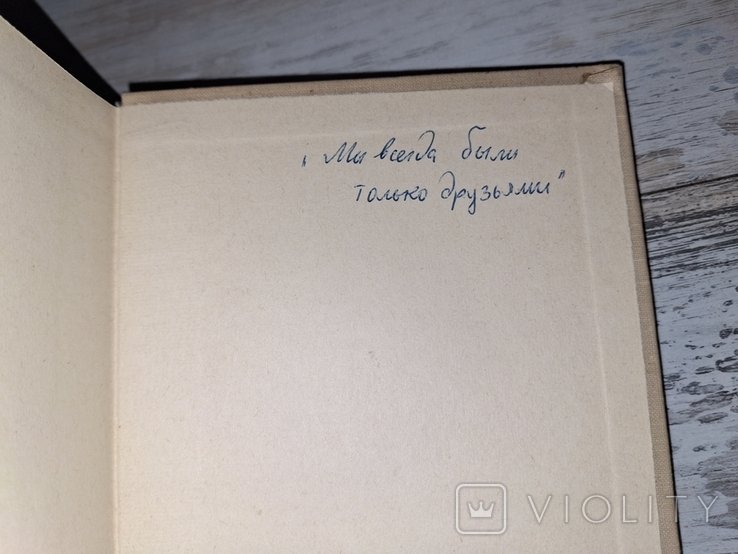 „Мы всегда были
только друзьями"
VIOLITY